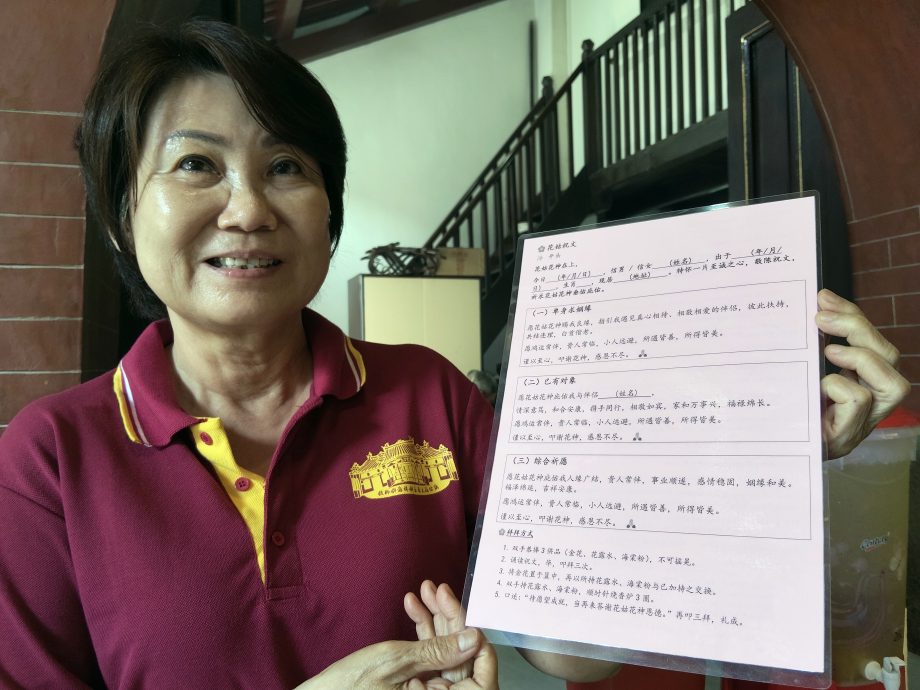 花姑祝文
花姑花神在上，
今日 (年/月/日) ，信男 / 信女 (姓名) ，出于 (年/月/
日) ，生肖 ，现居 (地址) ，特怀一片至诚之心，敬陈祝文，
祈求花姑花神垂怙庇佑。
（一）单身求姻缘
愿花姑花神赐我良缘，指引我遇见真心相待、相敬相爱的伴侣，彼此扶持，
共结连理，白首偕老。
愿鸿运常伴，贵人常临，小人远避，所遇皆善，所得皆美。
谨以至心，叩谢花神，感恩不尽。
（二）已有对象
愿花姑花神庇佑我与伴侣 (姓名) ，
情深意笃，和合安康，携手同行，相敬如宾，家和万事兴，福禄绵长。
愿鸿运常伴，贵人常临，小人远避，所遇皆善，所得皆美。
谨以至心，叩谢花神，感恩不尽。
（三）综合祈愿
愿花姑花神庇佑我人缘广结，贵人常伴，事业顺遂，感情稳固，姻缘和美，
福泽绵延，吉祥安康。
愿鸿运常伴，贵人常临，小人远避，所遇皆善，所得皆美。
谨以至心，叩谢花神，感恩不尽。
拜拜方式
1. 双手恭捧3供品（金花、花露水、海棠粉），不可摇晃。
2. 诵读祝文，毕，叩拜三次。
3. 将金花置于盆中，再以所持花露水、海棠粉与已加持之交换。
4. 双手持花露水、海棠粉，顺时针绕香炉3圈。
5. 口述：“待愿望成就，当再来答谢花姑花神恩德。”再叩三拜，礼成。